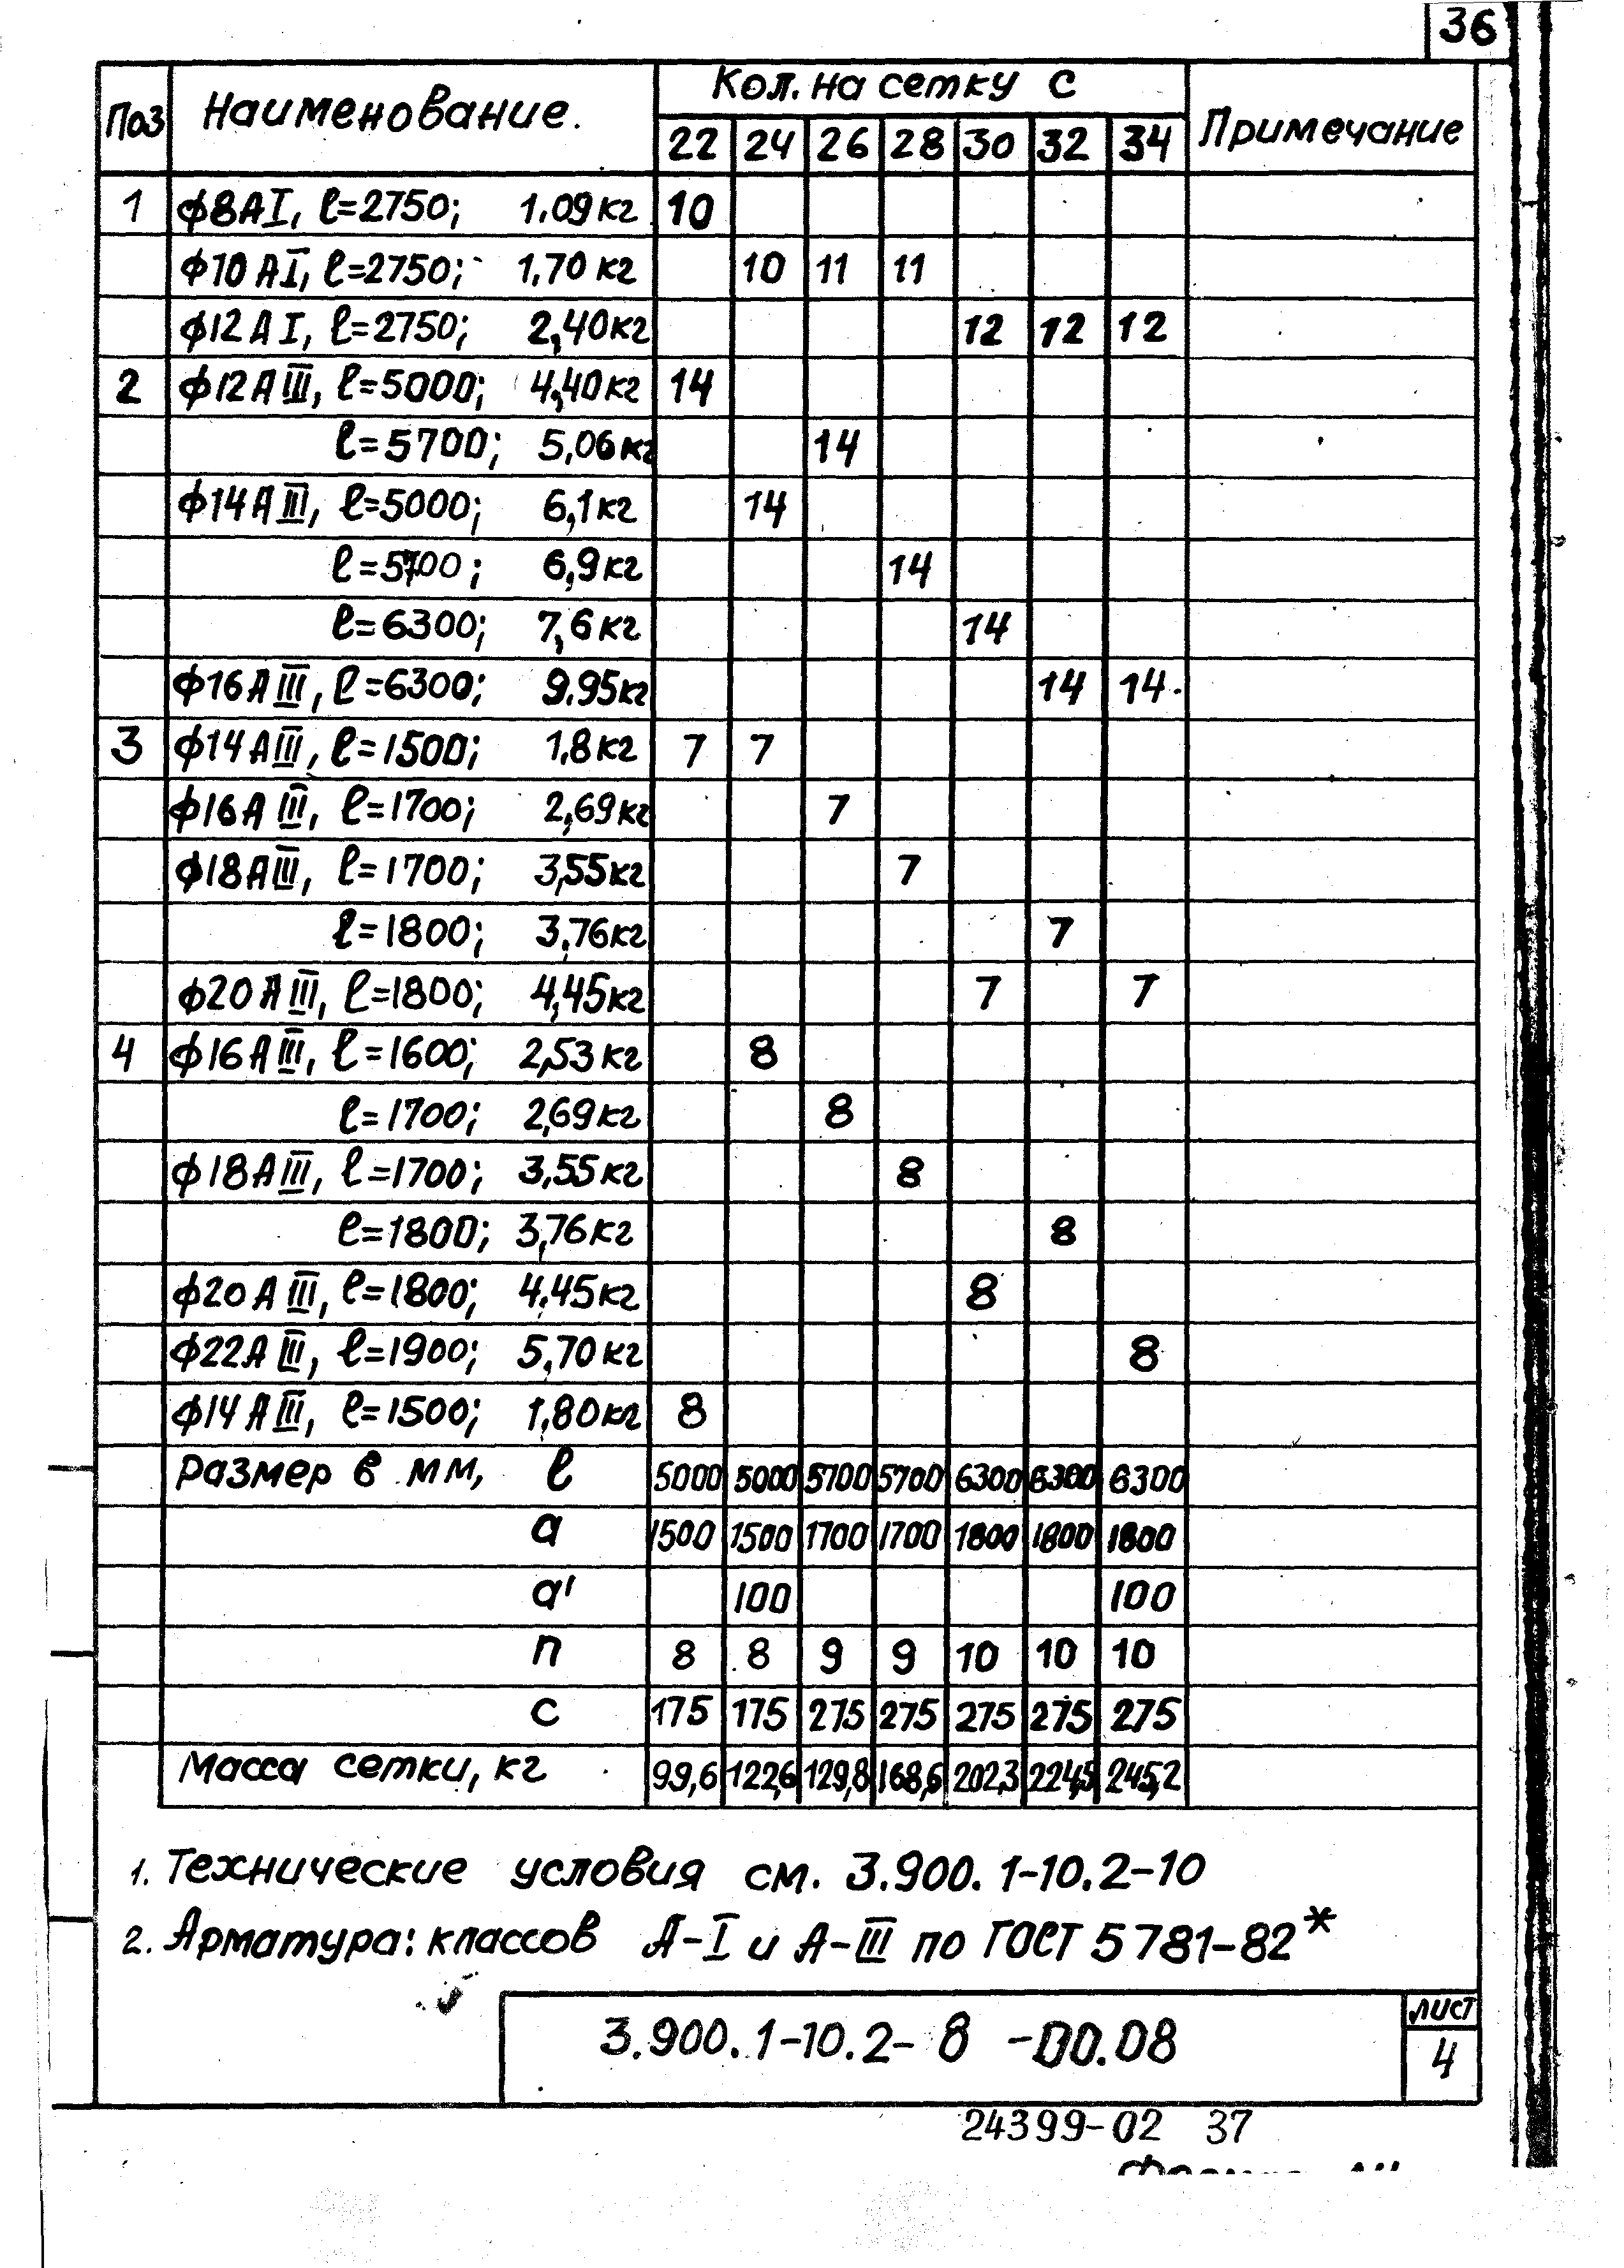 36
Поз Наименование. Кол. на сетку С Примечание
22 24 26 28 30 32 34
1 ф8АI, ℓ=2750; 1.09кг 10
ф10АI, ℓ=2750; 1,70 кг 10 11 11
ф12АI, ℓ=2750; 2,40кг 12 12 12
2 ф12АIII, ℓ=5000; 4,40кг 14
ℓ=5700; 5,06кг 14
ф14АIII, ℓ=5000; 6,1кг 14
ℓ=5700; 6,9кг 14
ℓ=6300; 7,6кг 14
ф16АIII, ℓ=6300; 9.95кг 14 14.
3 ф14АIII, ℓ=1500; 1,8кг 7 7
ф16АIII, ℓ=1700; 2,69кг 7
ф18АIII, ℓ=1700; 3,55кг 7
ℓ=1800; 3,76кг 7
ф20АIII, ℓ=1800; 4,45кг 7 7
4 ф16АIII, ℓ=1600; 2,53кг 8
ℓ=1700; 2,69кг 8
ф18АIII, ℓ=1700; 3,55кг 8
ℓ=1800; 3,76кг 8
ф20АIII, ℓ=1800; 4.45кг 8
ф22АIII, ℓ=1900; 5,70кг 8
ф14АIII, ℓ=1500; 1,80кг 8
Размер в мм, ℓ 5000 5000 5700 5700 6300 6300 6300
а 1500 1500 1700 1700 1800 1800 1800
а' 100 100
п 8 8 9 9 10 10 10
с 175 175 275 275 275 275 275
Масса сетки, кг 99,6 122,6 129,8 168,6 202,3 224,5 245,2
1. Технические условия см. 3.900.1-10.2-10
2. Арматура: классов А-I и А-III по ГОСТ 5781-82*
3.900.1-10.2- 8 -00.08
лист
4
24399-02 37